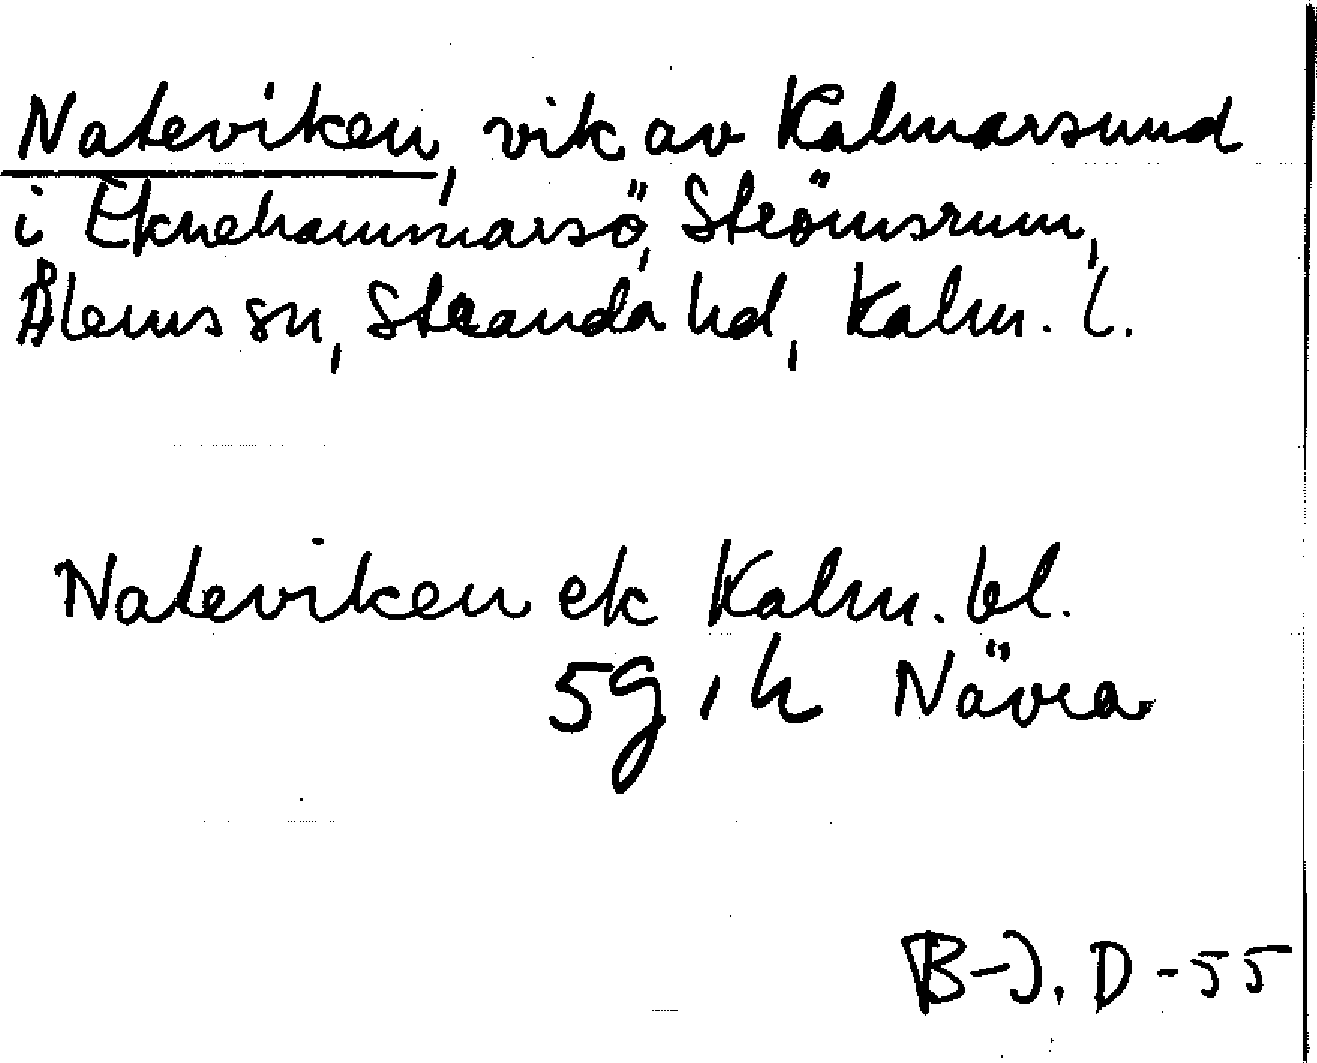 Nateviken, vik av Kalmarsund
i Eknehammarsö, Strömsrum,
Ålems sn, Stranda hd, Kalm. l.
Nateviken ek Kalm. bl.
5g, h Návra
B-J. D-55